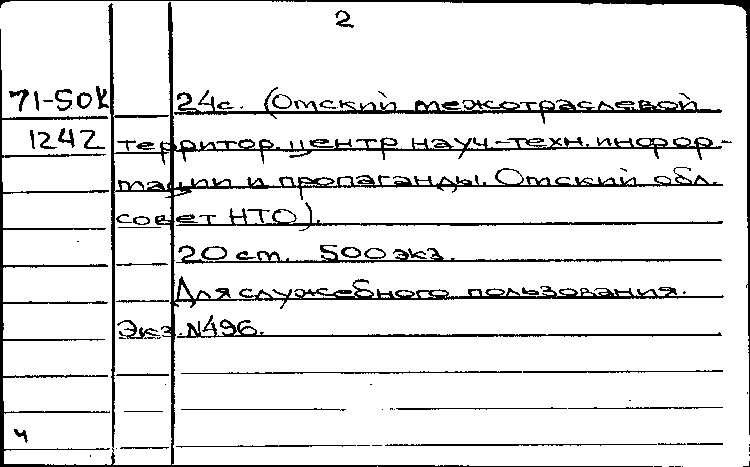 2
71-50K 24с. (Омский межотраслевой
1242 территор. центр науч.-техн. инфор-
мации и пропаганды. Омский обл.
совет НТО).
20 ст. 500 экз.
Для служебного пользования.
Экз. №496.
ч